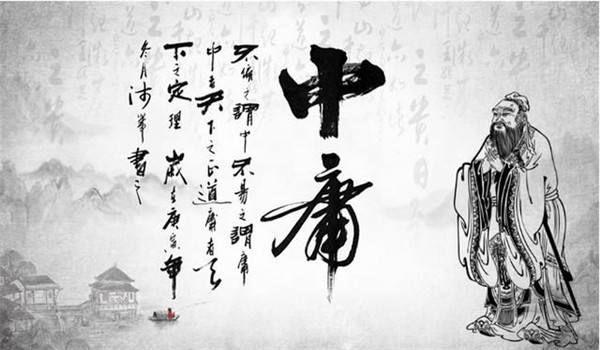 中庸
不偏之謂中不易之謂庸
中者天下之正道庸者天
下之定理 歲在庚寅年
冬月 書之